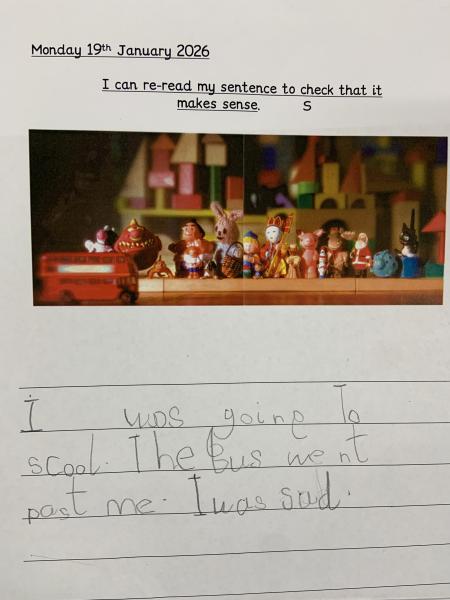 Monday 19th January 2026
I can re-read my sentence to check that it
makes sense. S
I was going To
scool. The Bus went
past me. I was sad.